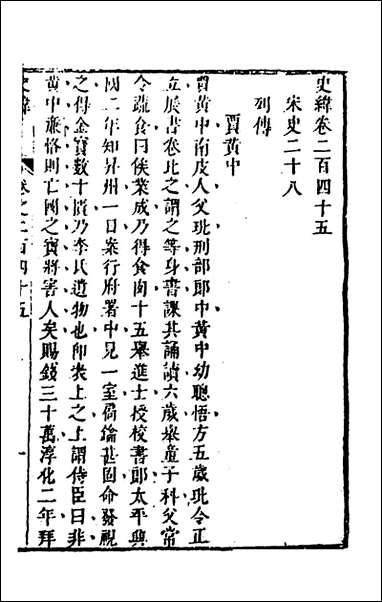 史緯卷二百四十五
宋史二十八
列傳
賈黃中
賈黃中南皮人父玭刑部郎中黃中幼聰悟方五歲玭令正
立展書卷比之謂之等身書課其誦讀六歲舉童子科父常
令疏食曰俟業成乃得食肉十五舉進士授校書郎太平興
國二年知昇州一日案行府署中見一室扃鑰甚固命發視
之得金寶數十櫃乃李氏遺物也卽表上之上謂侍臣曰非
黃中廉恪則亡國之寶將害人矣賜錢三十萬淳化二年拜
史緯 卷之二百四十五 一